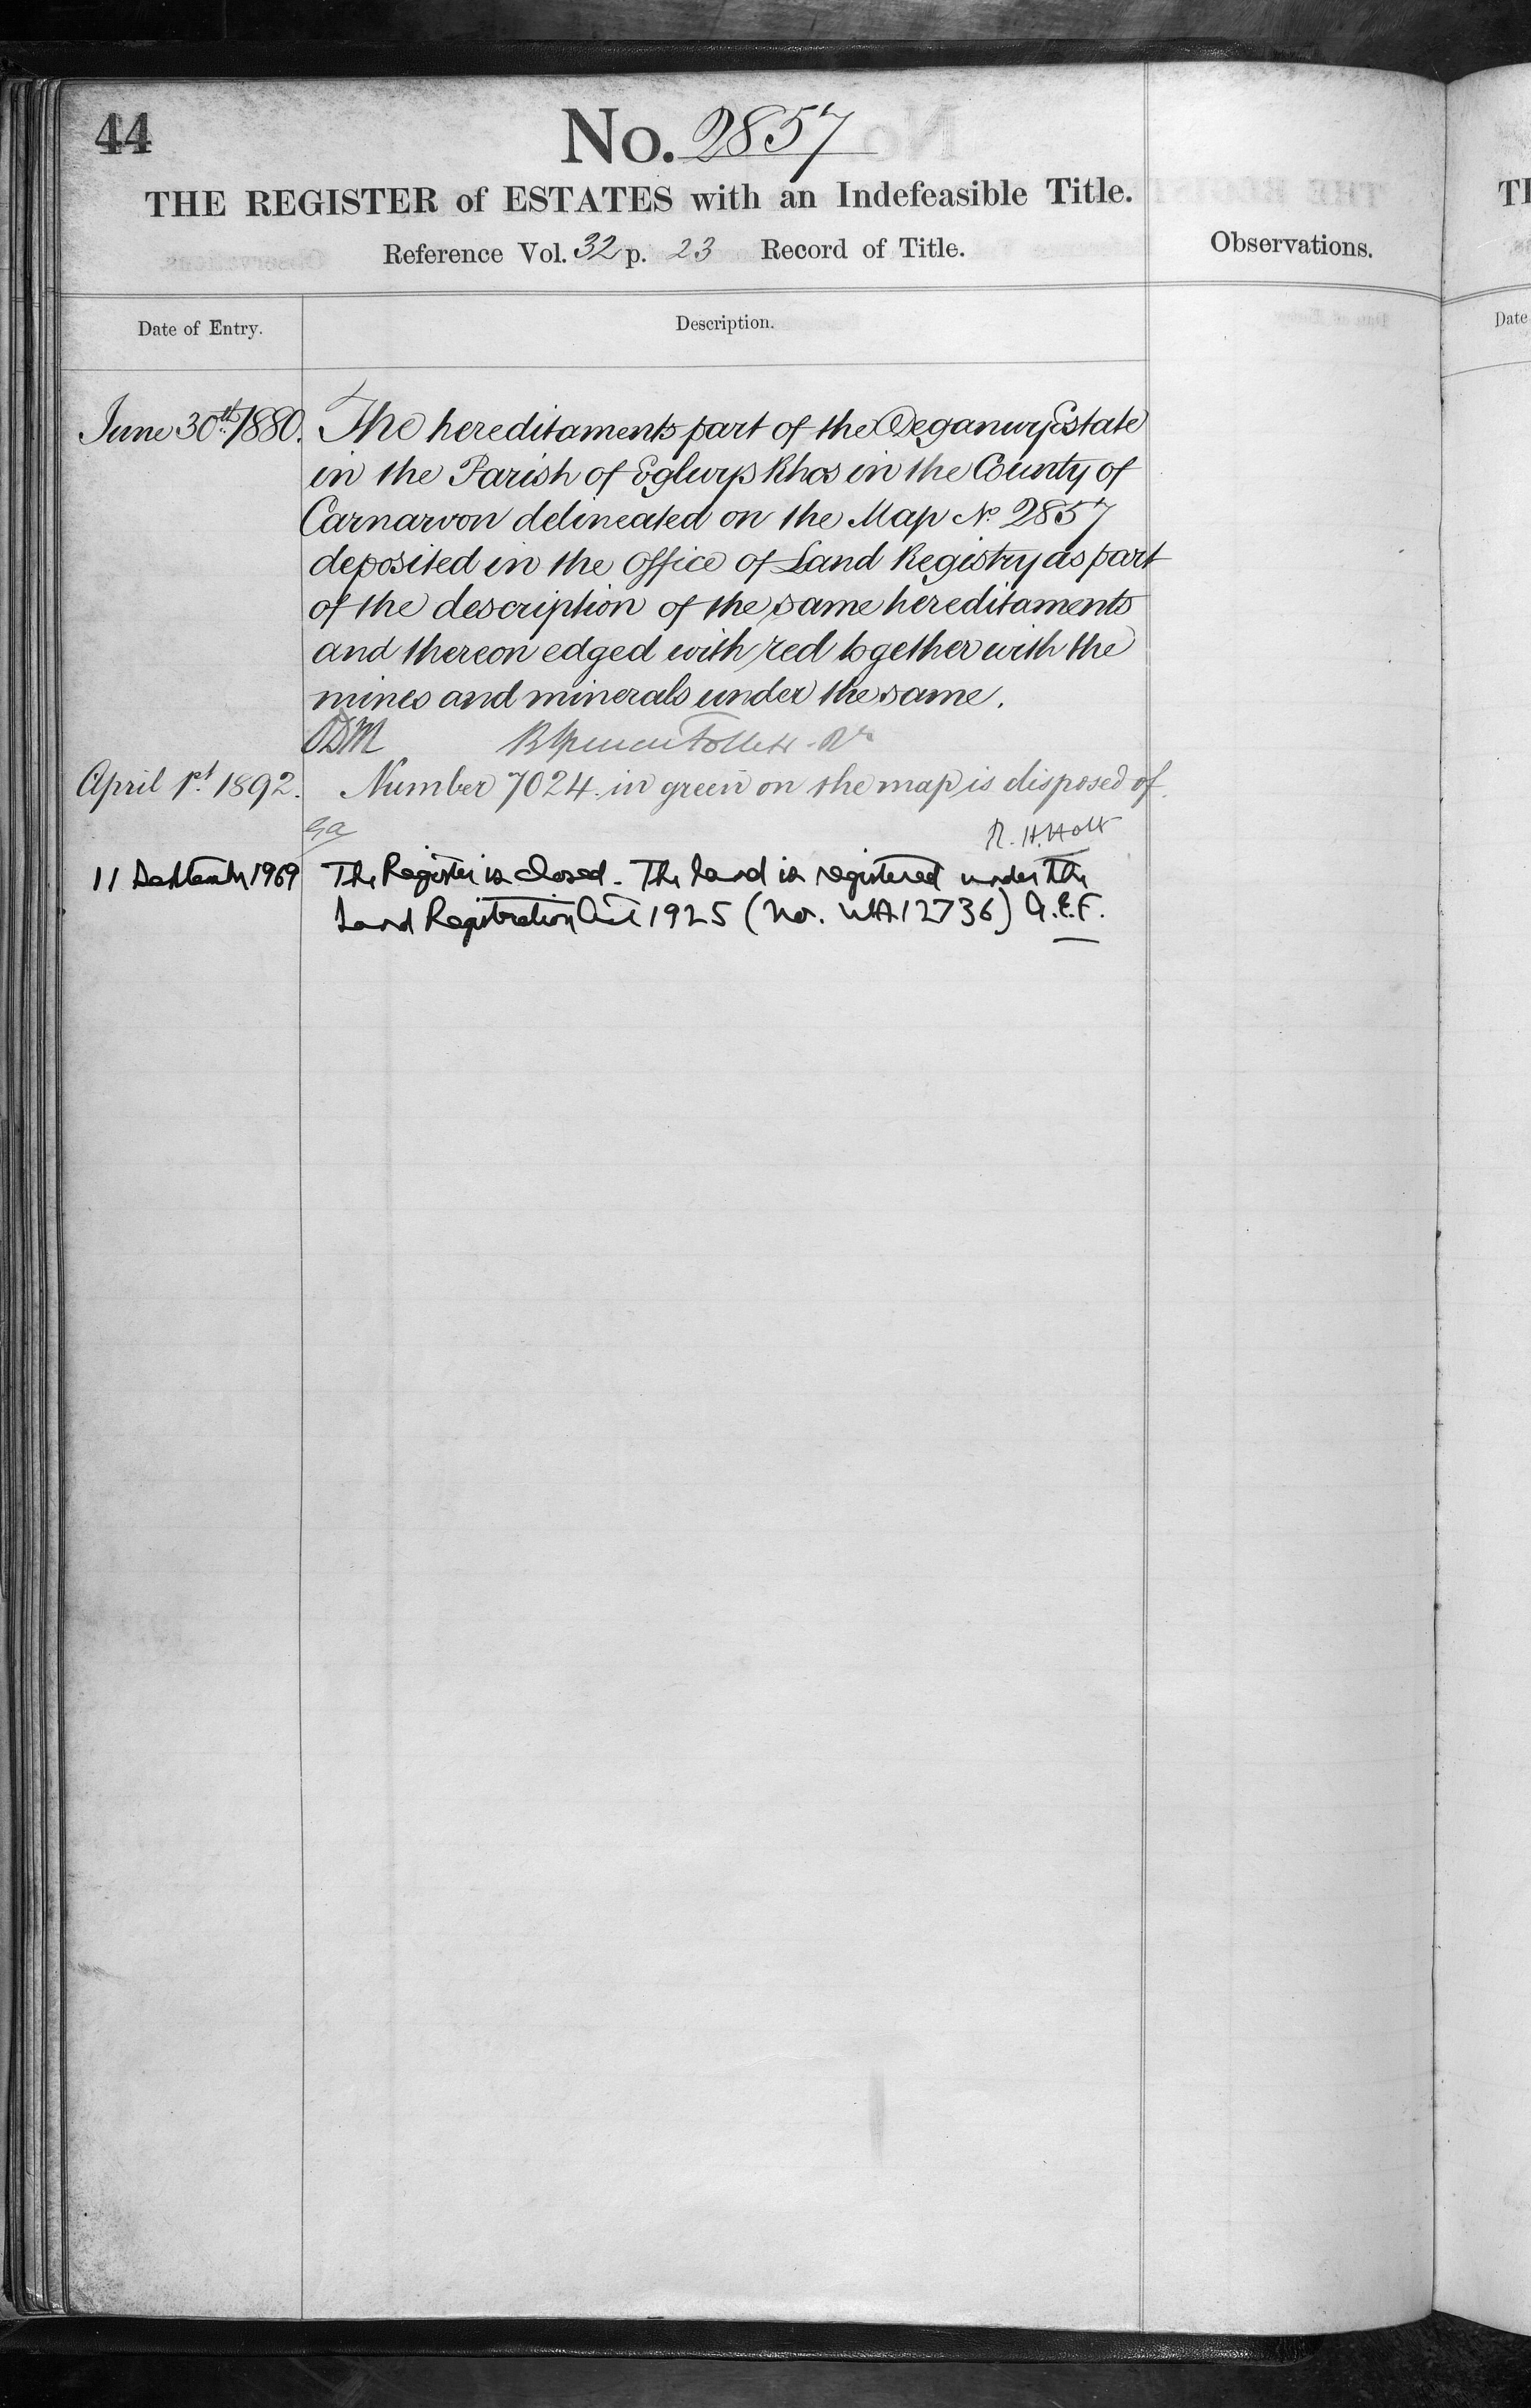 44
No. 2857
THE REGISTER of ESTATES with an Indefeasible Title.
Reference Vol. 32 p. 23 Record of Title.
Observations.
Date of Entry.
Description.
June 30th 1880.
The hereditaments part of the Deganwy Estate
in the Parish of Eglwys Rhos in the County of
Carnarvon delineated on the Map No. 2857
deposited in the Office of Land Registry as part
of the description of the same hereditaments
and thereon edged with red together with the
mines and minerals under the same.
April 1st 1892.
Number 7024 in green on the map is disposed of.
R. H. Holt
11 September 1969
The Register is closed. The land is registered under the
Land Registration Act 1925 (No. WA12736) A.E.F.
Date